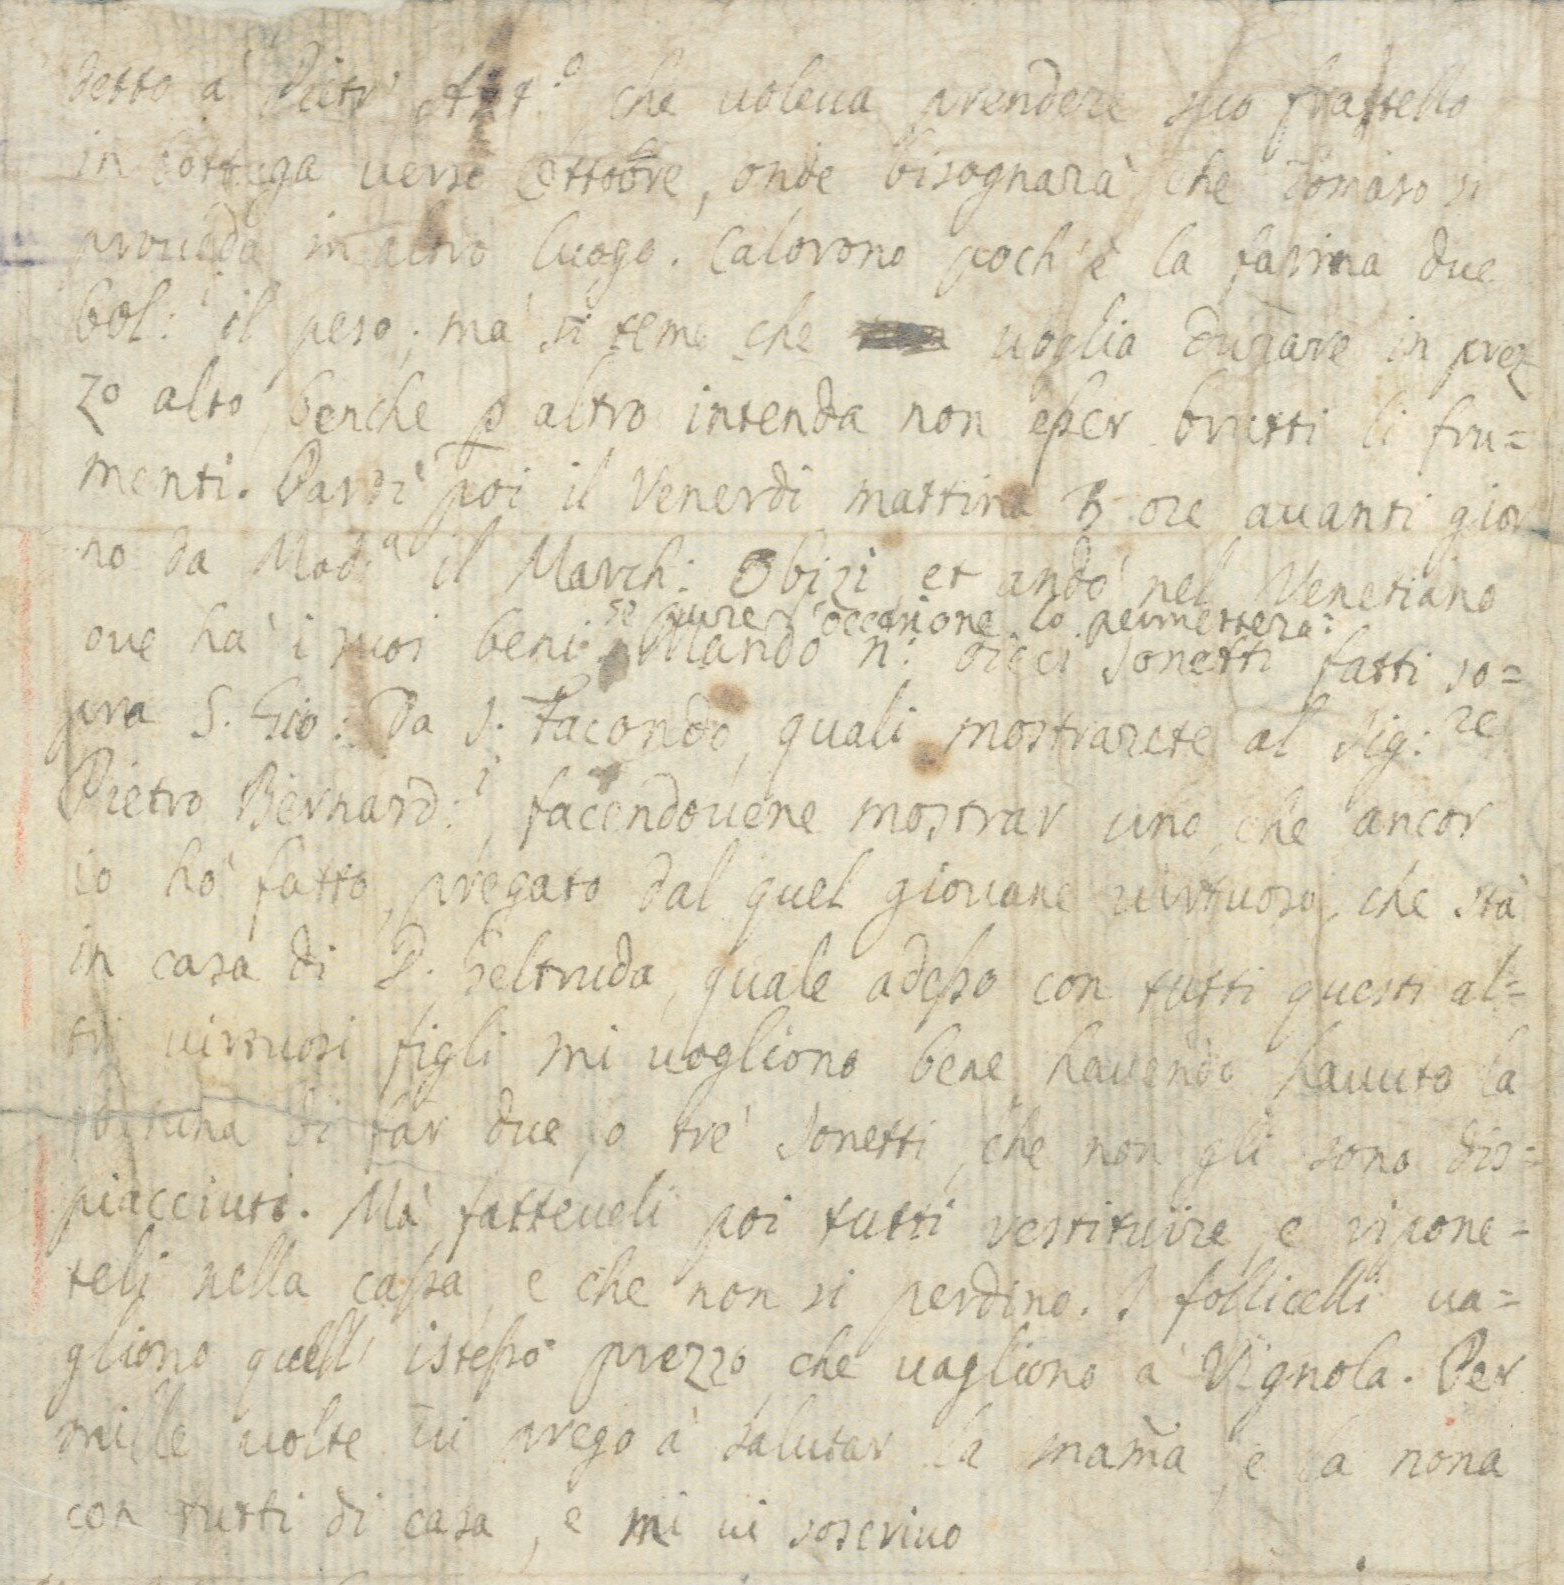 detto à Pietr' Ant.º che voleva prendere suo fratello
in bottega verso Ottobre, onde bisognarà che Tomaso si
proveda in altro luogo. Calorono poch'è la farina due
bol: il peso; mà si teme che voglia durare in prez
zo alto benche p altro intenda non esser brutti li fru=
menti. Partì poi il Venerdì mattina 3 ore avanti gior
no da Mod.ª il March: Obizi et andò nel Venetiano
ove hà i suoi beni. se pure l'occasione lo permetterà:
Mandò n: dieci Sonetti fatti so=
pra S. Gio: Da S. Facondo, quali mostrarete al Sig:re
Pietro Bernard:i, facendovene mostrar uno, che ancor
io hò fatto, pregato dal quel giovane virtuoso, che stà
in casa di D. Geltruda, quale adesso con tutti questi al=
tri virtuosi figli mi vogliono bene, havendo havuto la
fortuna di far due, o tre Sonetti, che non gli sono dis=
piacciuti. Mà fatteveli poi tutti restituire, e ripone=
teli nella cassa, e che non si perdino. I follicelli va=
gliono quell' istesso prezzo, che vagliono à Vignola. Per
mille volte vi prego à salutar la mam̃a, e la nona
con tutti di casa, e mi vi soscrivo